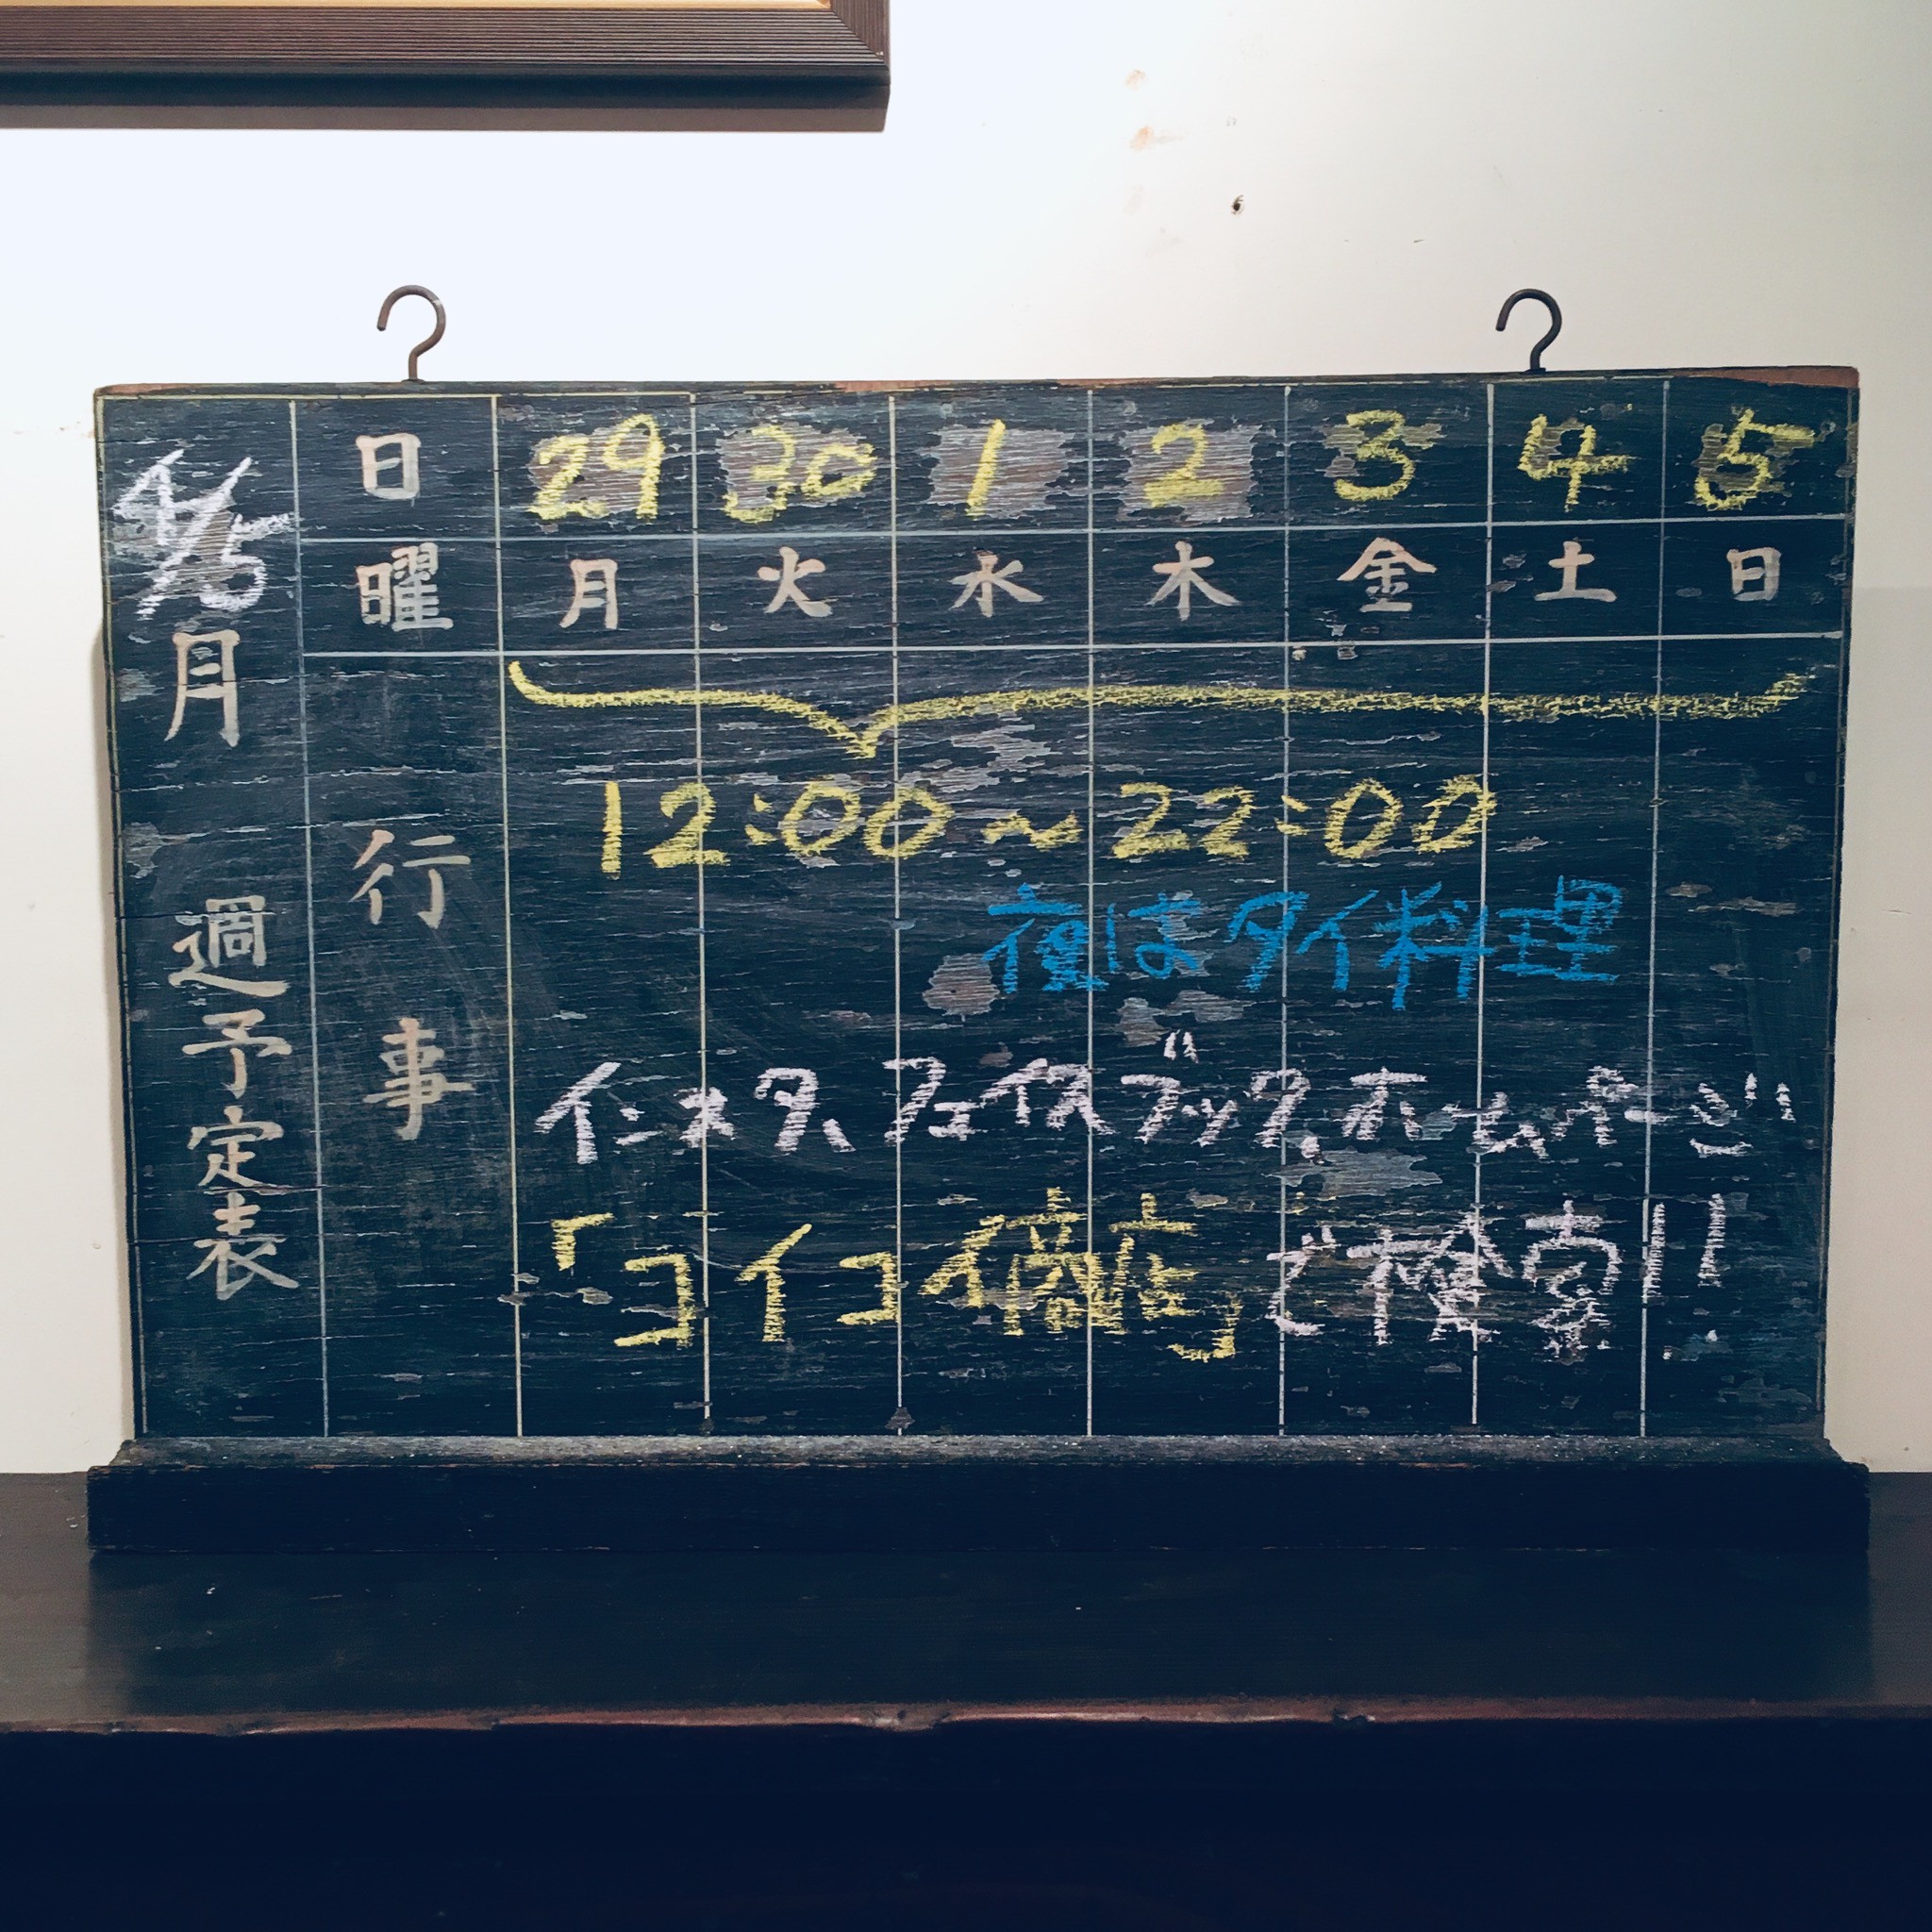 4/5月
週予定表
日 29 30 1 2 3 4 5
曜 月 火 水 木 金 土 日
行事
12:00~22:00
夜はタイ料理
インスタ、フェイスブック、ホームページ
「コイコイ商店」で検索!!